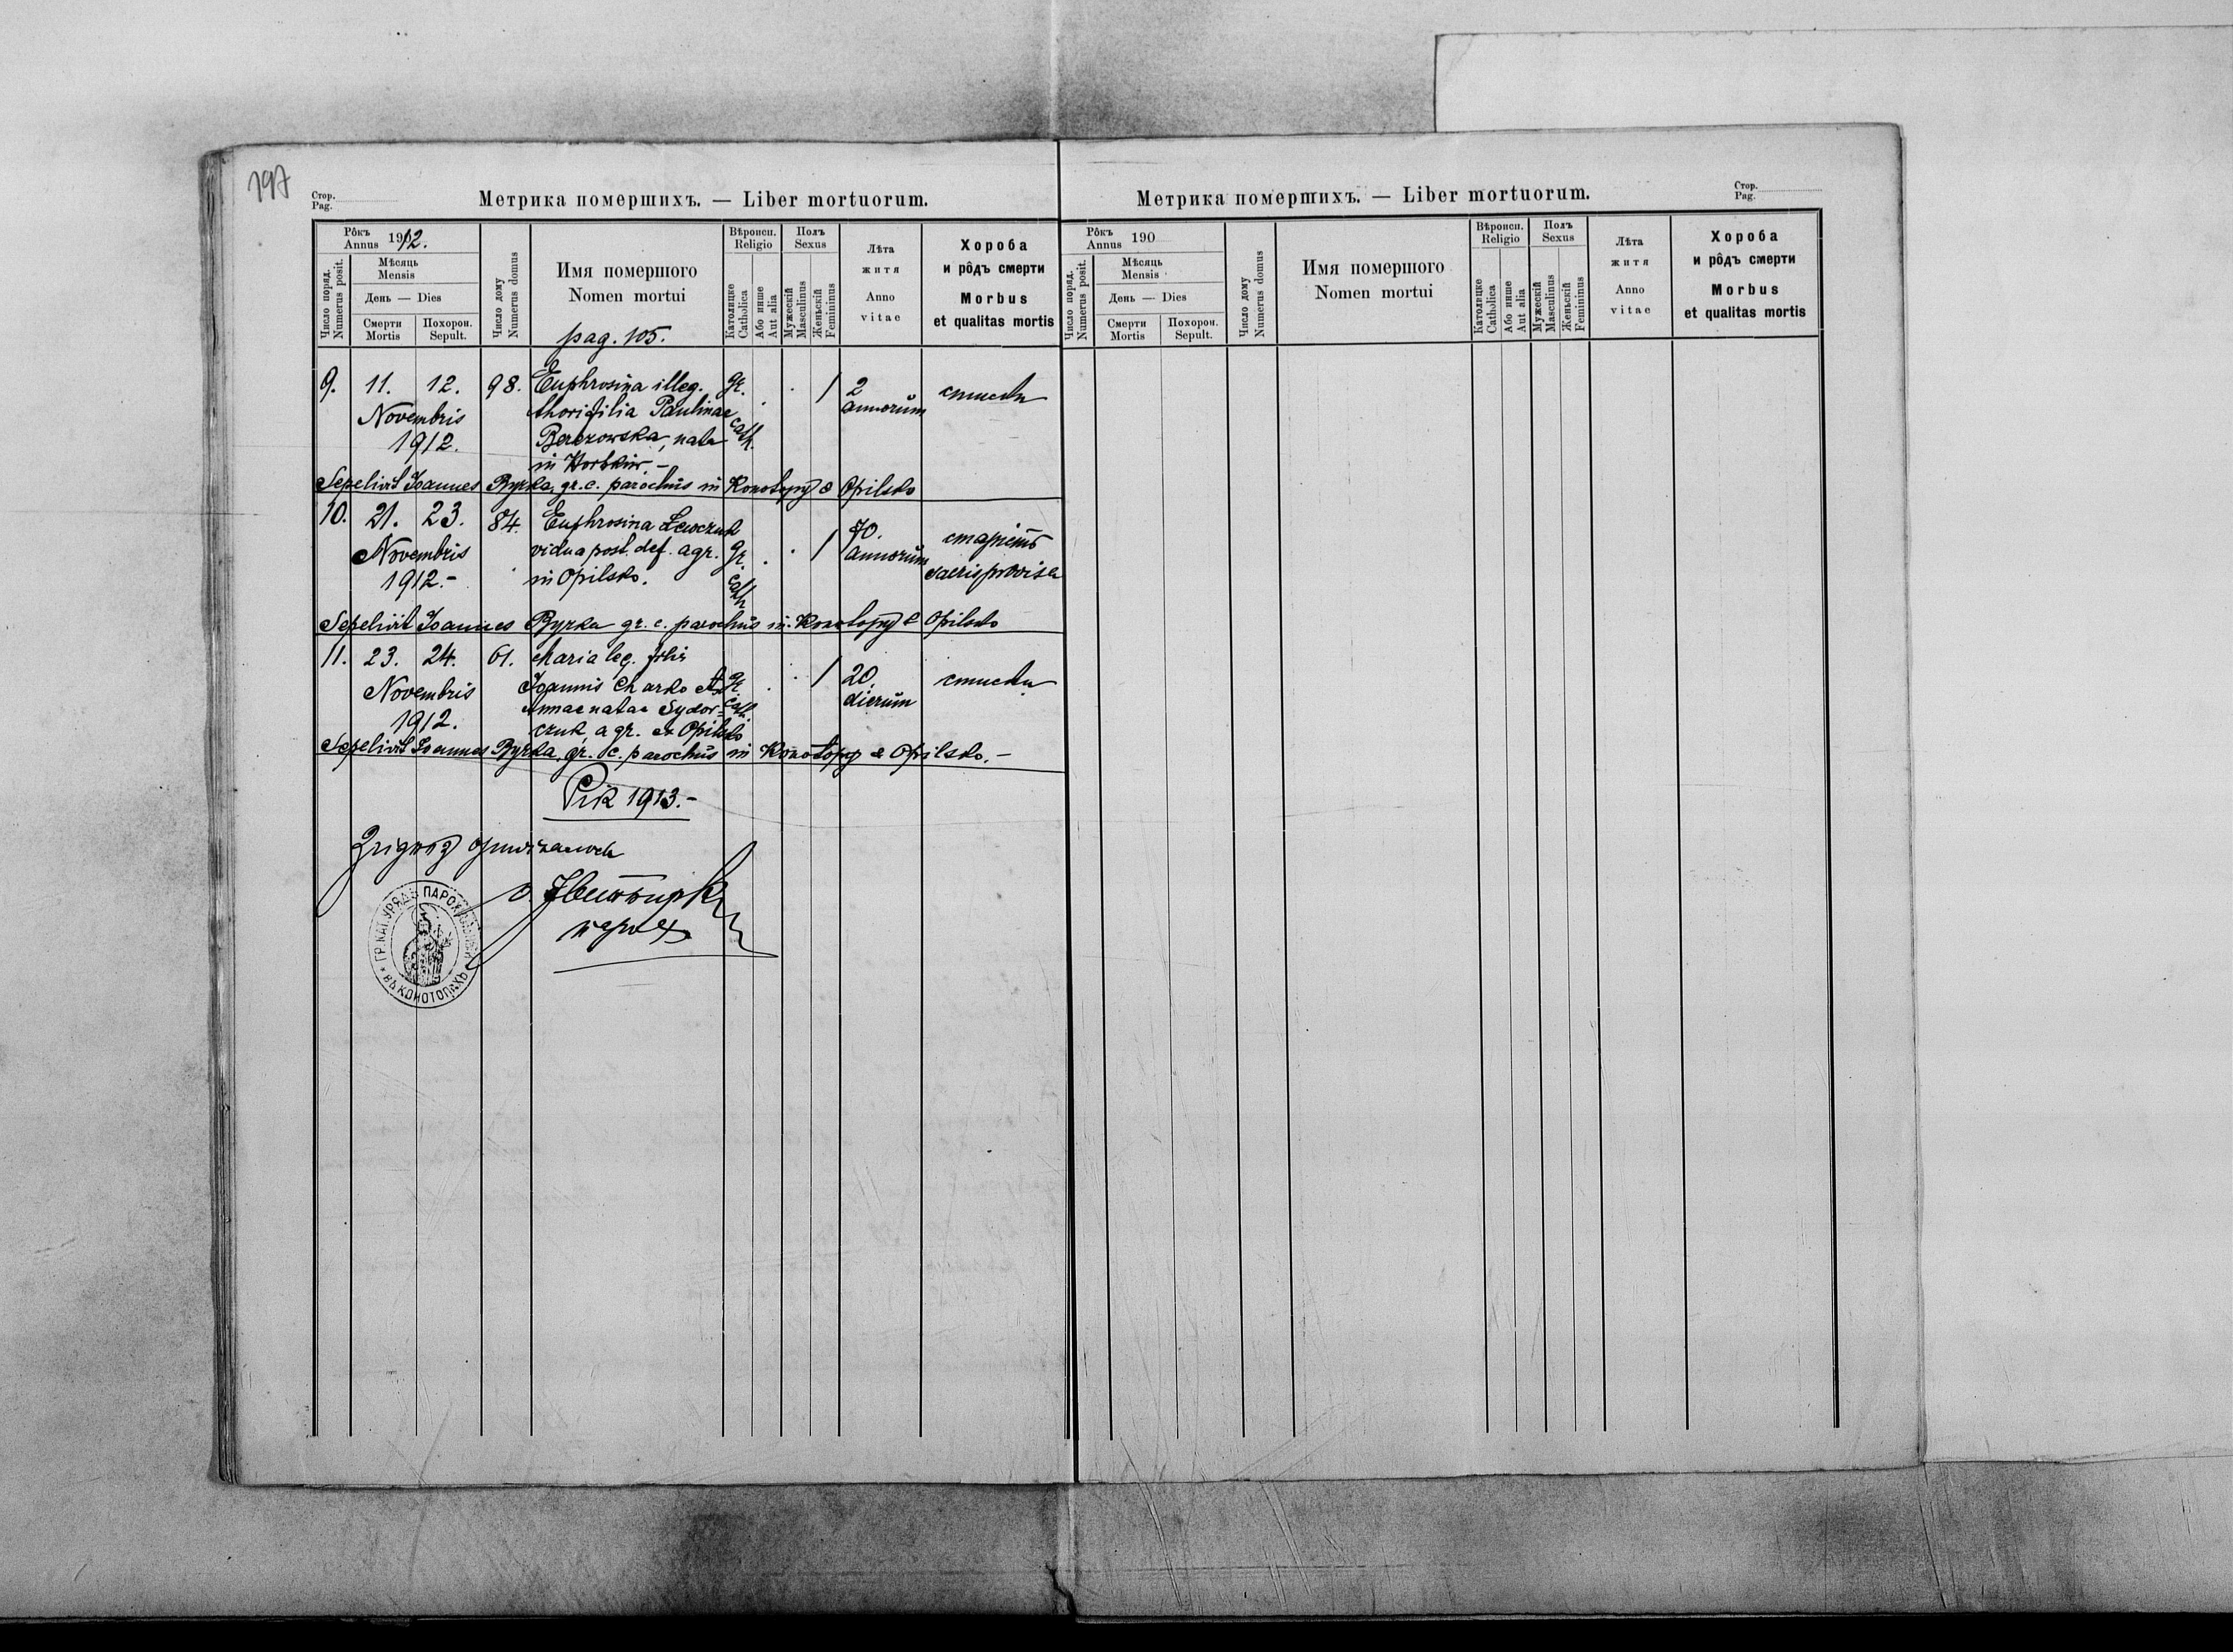 197
Стор.
Pag.
Метрика помершихъ. — Liber mortuorum.
Рôкъ
Annus 1912.
Число поряд.
Numerus posit.
Мѣсяць
Mensis
День — Dies
Смерти
Mortis
Похорон.
Sepult.
Число дому
Numerus domus
Имя помершого
Nomen mortui
pag. 105.
Вѣроисп.
Religio
Католицке
Catholica
Або инше
Aut alia
Полъ
Sexus
Мужескій
Masculinus
Женьскій
Femininus
Лѣта
житя
Anno
vitae
Хороба
и рôдъ смерти
Morbus
et qualitas mortis
9. 11. 12. 98. Euphrosina illeg. gr. . . / 2
Novembris thori filia Paulinae cath. annorum
1912. Berezowska, nata
in Horbkiw. –
Sepelivit Joannes Byrka, gr. c. parochus in Konotopy & Opilsko
10. 21. 23. 84. Euphrosina Lewczuk / 70.
Novembris vidua post. def. agr. gr. . . annorum
1912.– in Opilsko. cath sacris provisa
Sepelivit Joannes Byrka gr. c. parochus in Konotopy & Opilsko
11. 23. 24. 61. Maria leg. filia
Novembris Joannis Charko et gr. . . / 20
1912. Annae natae Sydor- cath. dierum
czuk, agr. ex Opilsko
Sepelivit Joannes Byrka, gr. c. parochus in Konotopy & Opilsko. –
Рік 1913.–
парох
ГР. КАТ. УРЯДЪ ПАРОХІЯЛЬНЫЙ
ВЪ КОНОТОПАХЪ
Метрика помершихъ. — Liber mortuorum.
Стор.
Pag.
Рôкъ
Annus 190
Число поряд.
Numerus posit.
Мѣсяць
Mensis
День — Dies
Смерти
Mortis
Похорон.
Sepult.
Число дому
Numerus domus
Имя помершого
Nomen mortui
Вѣроисп.
Religio
Католицке
Catholica
Або инше
Aut alia
Полъ
Sexus
Мужескій
Masculinus
Женьскій
Femininus
Лѣта
житя
Anno
vitae
Хороба
и рôдъ смерти
Morbus
et qualitas mortis